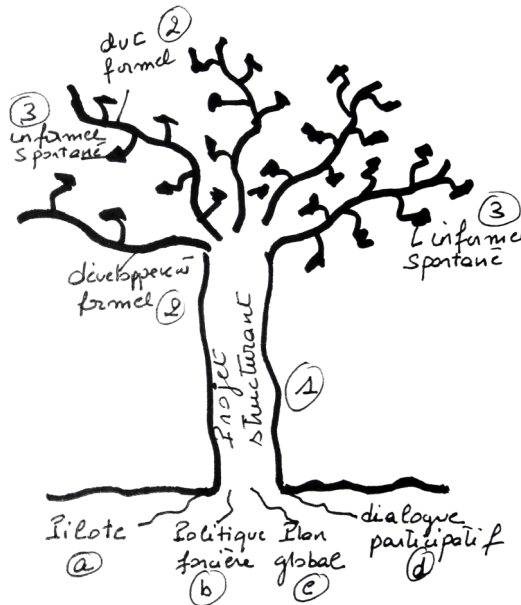 dvt ②
formel
③
informel
spontané
③
L'informel
spontané
développement
formel ②
Projet
structurant
①
Pilote
ⓐ
Politique
foncière
ⓑ
Plan
global
ⓒ
dialogue
participatif
ⓓ